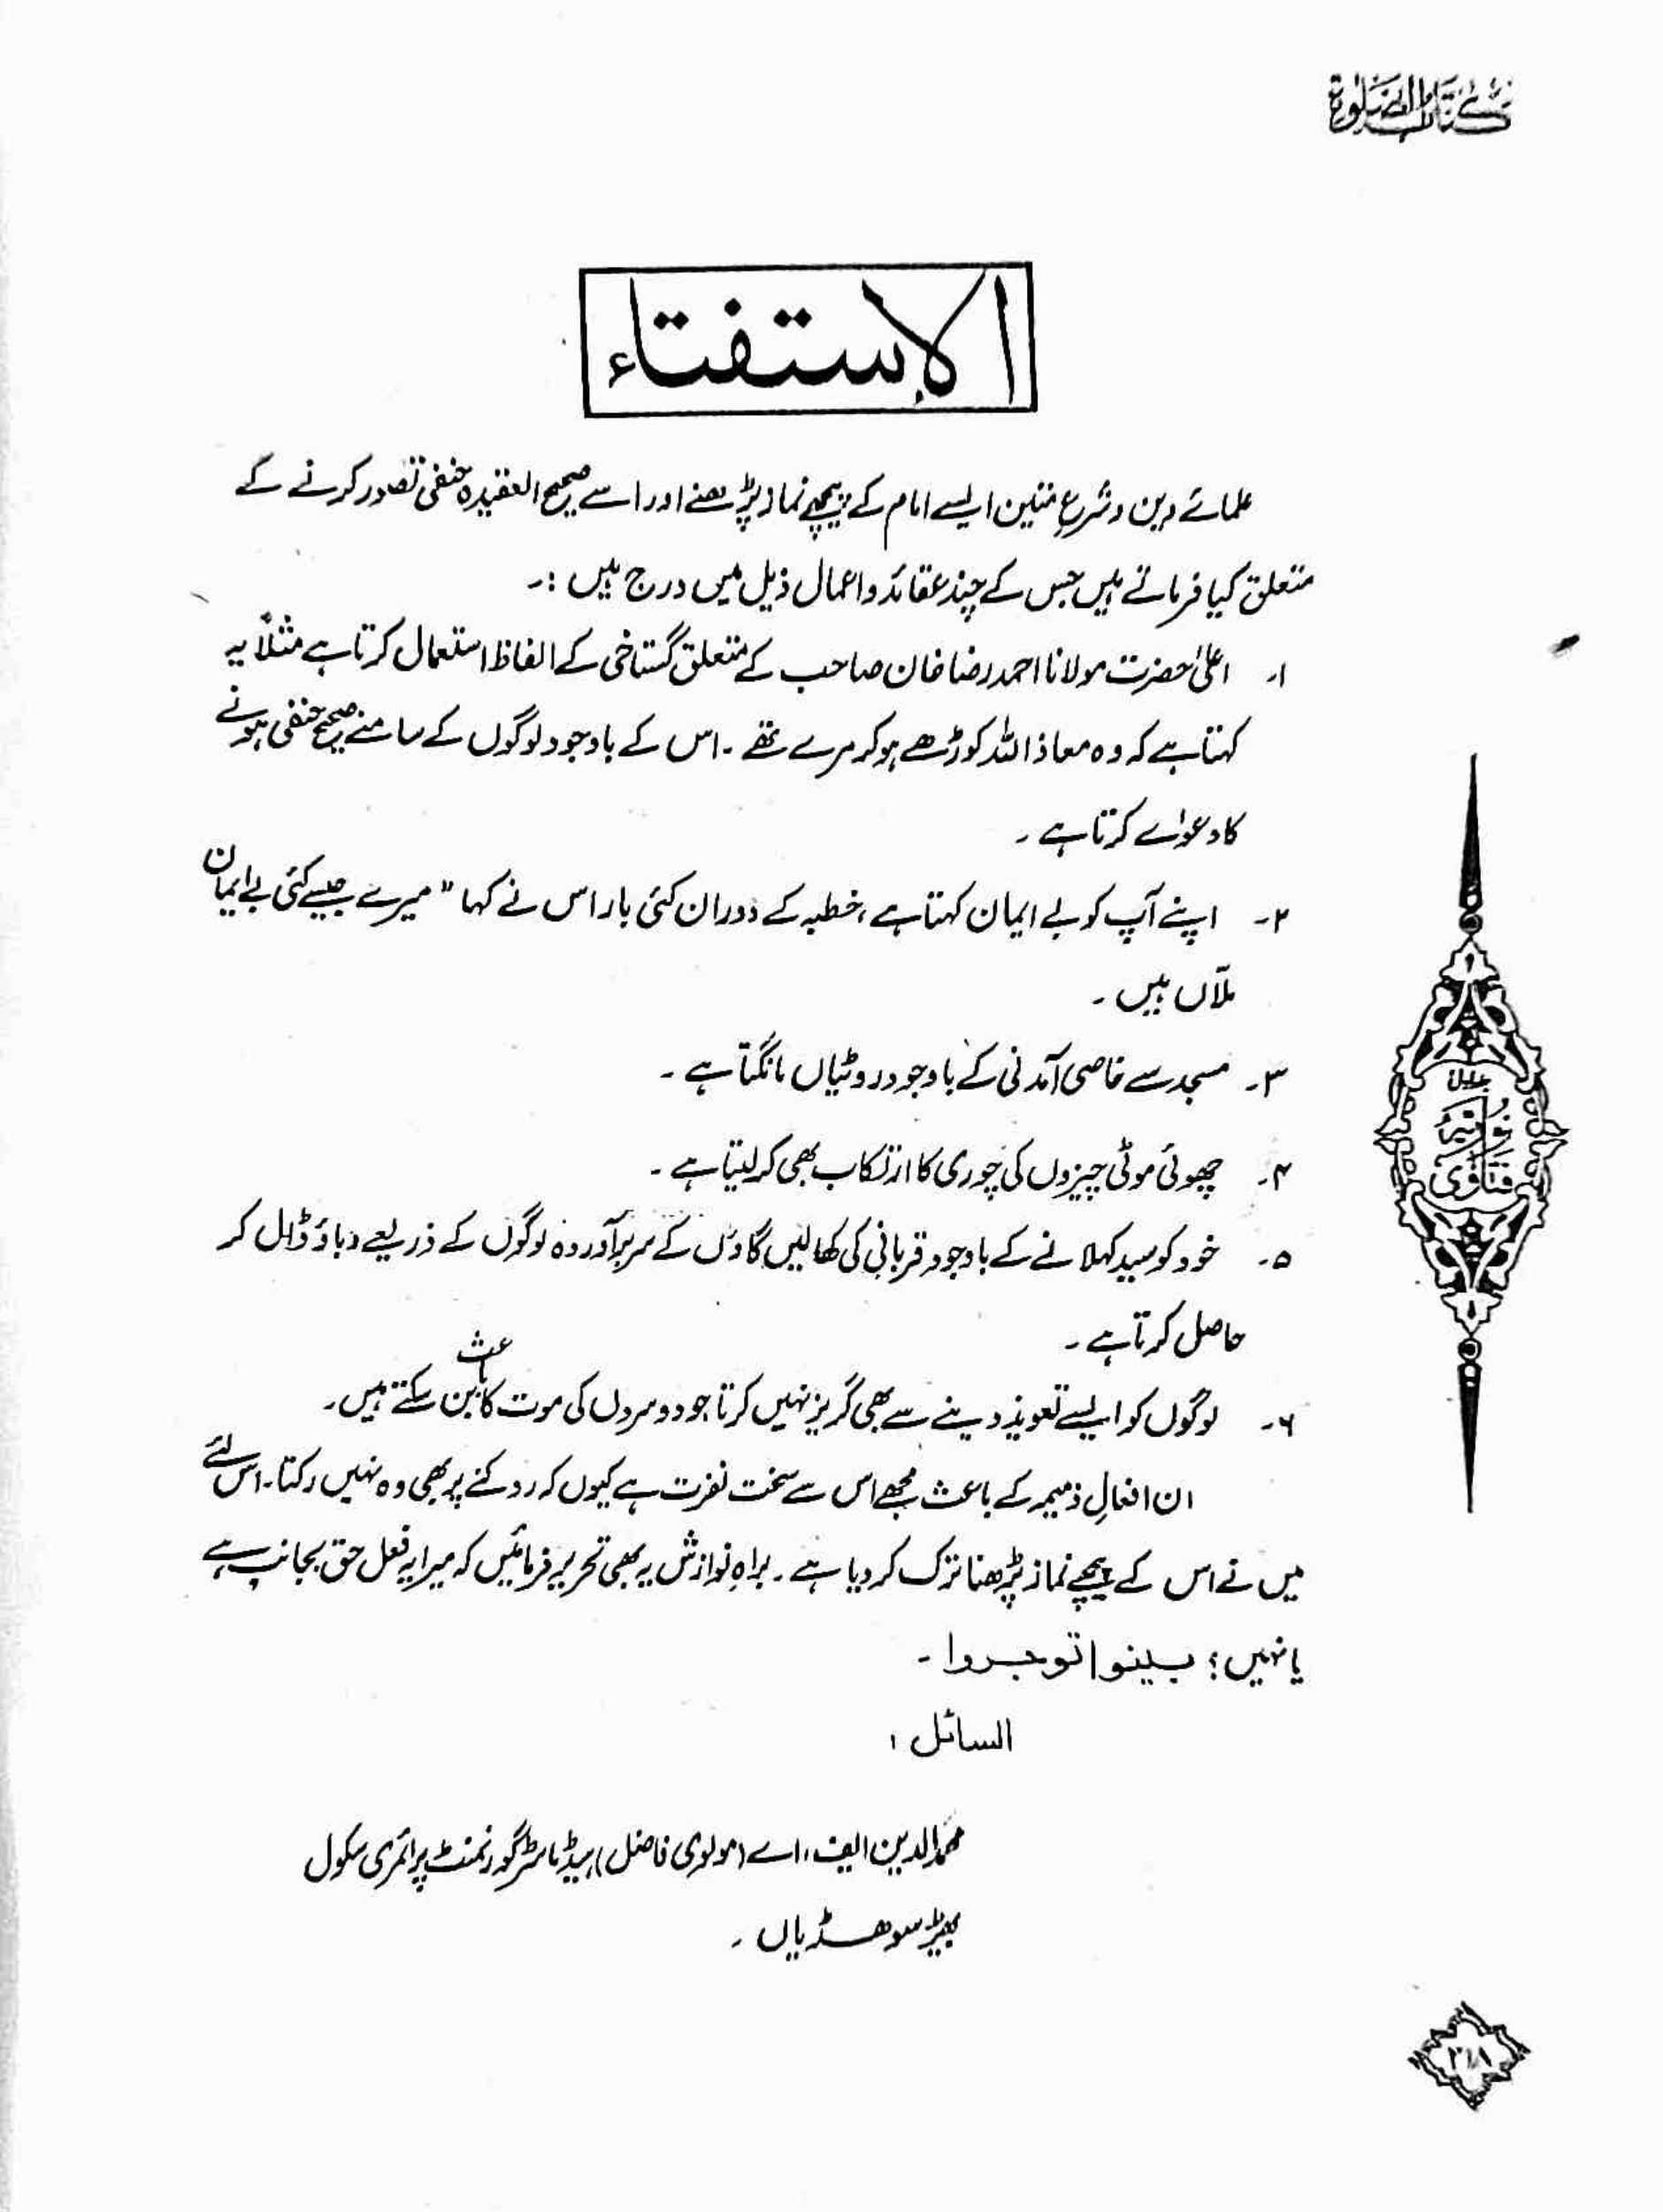 كتاب الصلوة
الإستفتاء
علمائے دین و شرع متین ایسے امام کے پیچھے نماز پڑھنے اور اسے صحیح العقیدہ حنفی تصور کرنے کے
متعلق کیا فرماتے ہیں جس کے چند عقائد و اعمال ذیل میں درج ہیں :۔
۱۔ اعلیٰ حضرت مولانا احمد رضا خان صاحب کے متعلق گستاخی کے الفاظ استعمال کرتا ہے مثلاً یہ
کہتا ہے کہ وہ معاذ اللہ کوڑھے ہو کر مرے تھے ۔ اس کے باوجود لوگوں کے سامنے صحیح حنفی ہونے
کا دعوٰے کرتا ہے ۔
۲۔ اپنے آپ کو بے ایمان کہتا ہے ، خطبہ کے دوران کئی بار اس نے کہا " میرے جیسے کئی بے ایمان
ملّاں ہیں ۔
۳۔ مسجد سے خاصی آمدنی کے باوجود روٹیاں مانگتا ہے ۔
۴۔ چھوٹی موٹی چیزوں کی چوری کا ارتکاب بھی کر لیتا ہے ۔
۵۔ خود کو سید کہلانے کے باوجود قربانی کی کھالیں گاؤں کے سربرآوردہ لوگوں کے ذریعے دباؤ ڈال کر
حاصل کرتا ہے ۔
۶۔ لوگوں کو ایسے تعویذ دینے سے بھی گریز نہیں کرتا جو دوسروں کی موت کا باعث بن سکتے ہیں ۔
ان افعالِ ذمیمہ کے باعث مجھے اس سے سخت نفرت ہے کیوں کہ روکنے پر بھی وہ نہیں رکتا ۔ اس لئے
میں نے اس کے پیچھے نماز پڑھنا ترک کر دیا ہے ۔ براہِ نوازش یہ بھی تحریر فرمائیں کہ میرا یہ فعل حق بجانب ہے
یا نہیں ؟ بینوا توجروا ۔
السائل :
محمد الدین ایف ، اے (مولوی فاضل) ہیڈ ماسٹر گورنمنٹ پرائمری سکول
بھیڑ سوھڈیاں ۔
جلد اول
نوریہ
فتاوی
۲۱۸